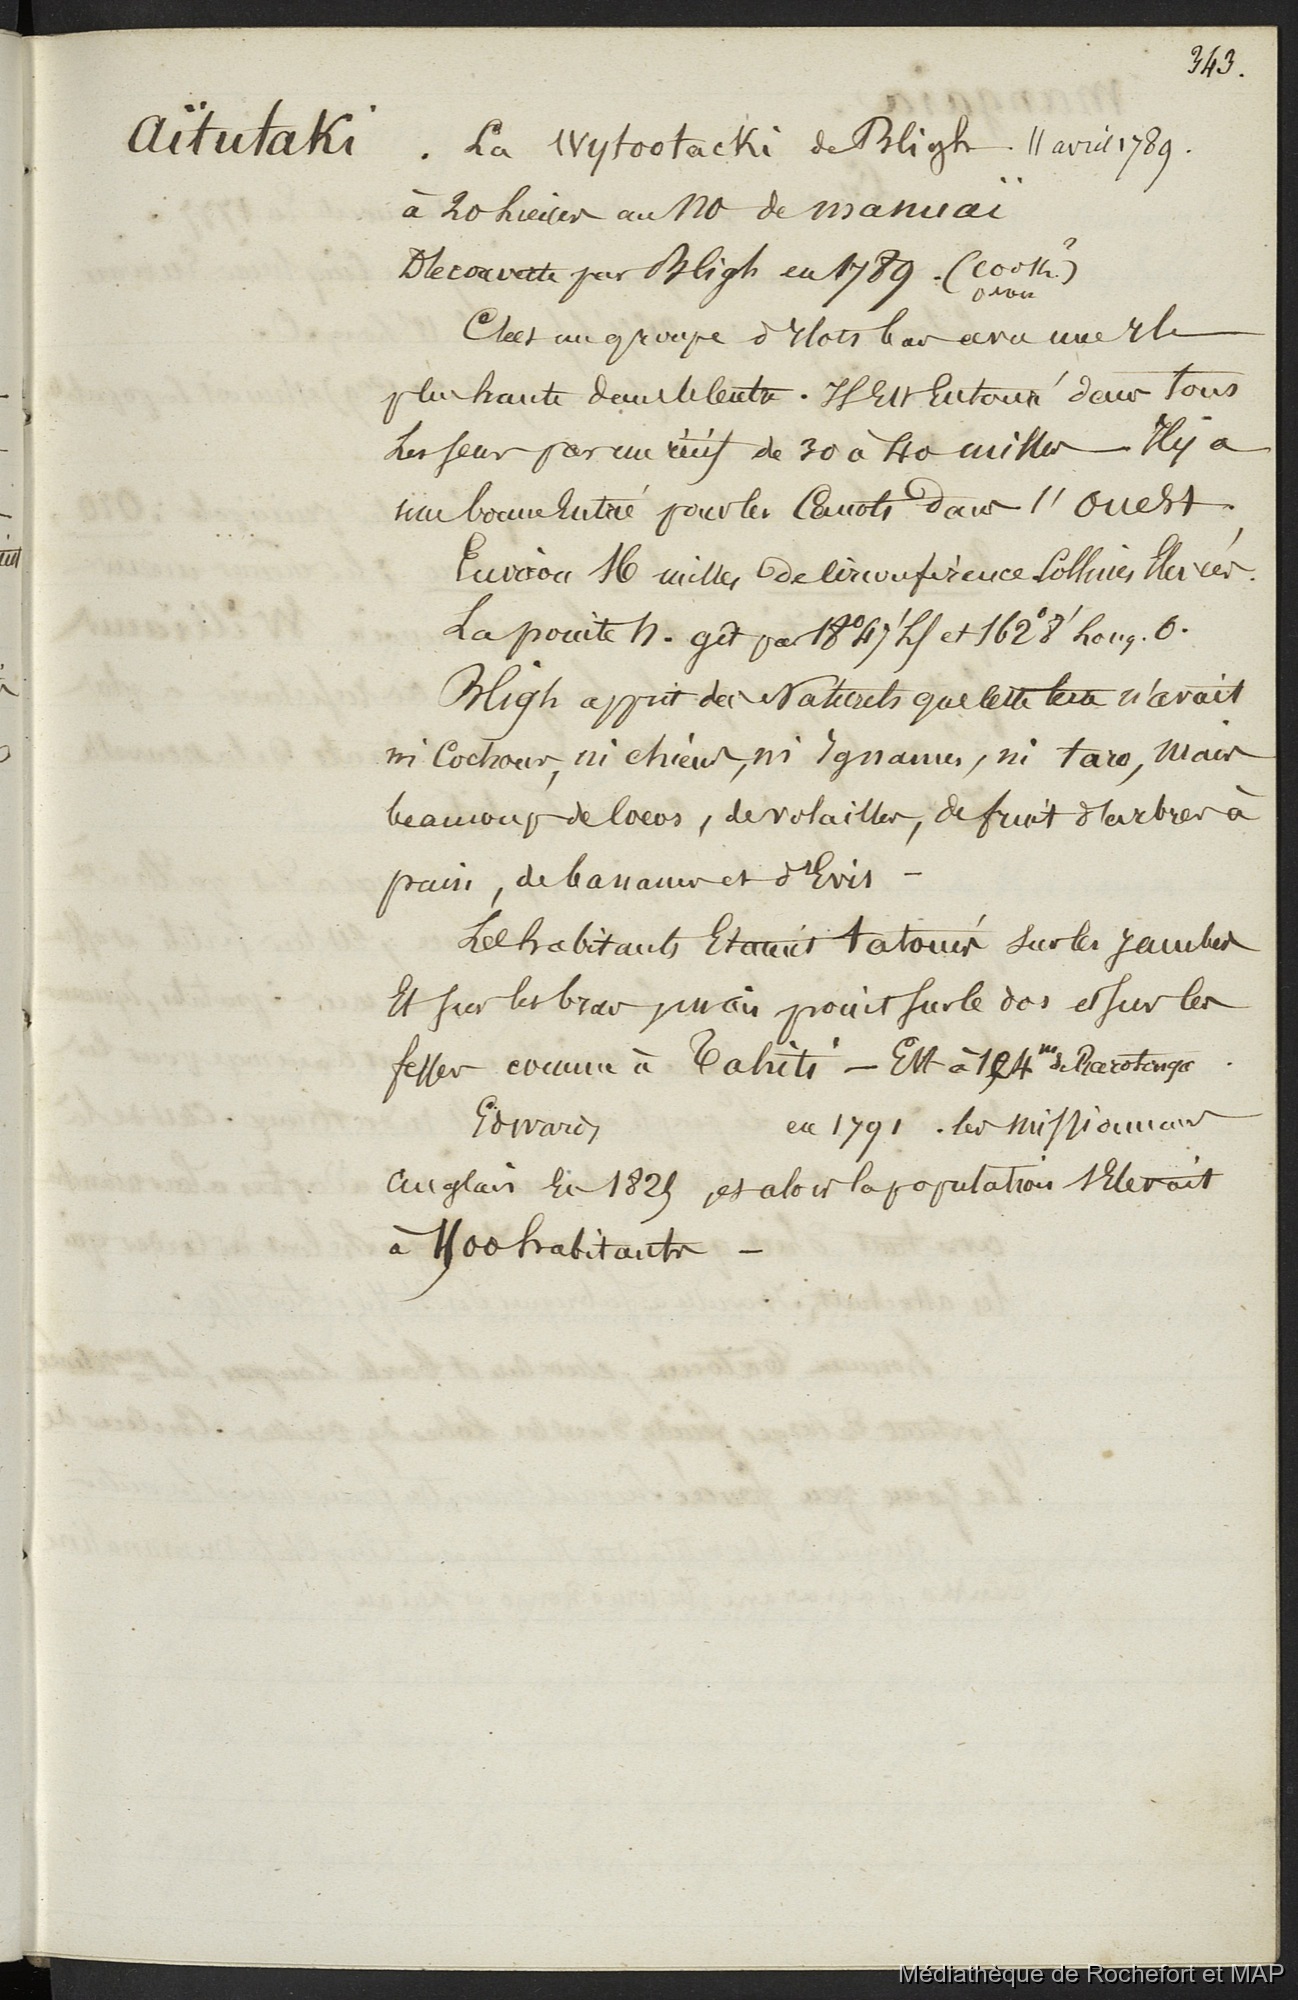 343.
Aïtutaki . La Wytootacki de Bligh . 11 avril 1789 .
à 20 lieües au NO de Manuaï
Découverte par Bligh en 1789 . (Cook ?)
C'est un groupe d'Ilots bas avec une Ile
plus haute dans le Centre . Il Est Entouré dans tous
Les sens par un récif de 30 à 40 milles — Il y a
une bonne Entrée pour les Canots dans l'Ouest .
Environ 16 milles de Circonférence . Collines Elevées .
La pointe N. gît par 18° 47' LS et 162° 8' Long. O.
Bligh apprit des Naturels que cette terre n'avait
ni Cochons, ni chiens, ni Ignames, ni taro, Mais
beaucoup de Cocos, de volailles, de fruit d'arbres à
pain, de bananes et d'Evis –
Les habitants Etaient tatoués sur les Jambes
Et sur les bras mais point sur le dos et sur les
fesses comme à Tahiti — Est à 124 ms de Rarotonga .
Edwards en 1791 . les Missionnaires
anglais En 1825 et alors la population s'Elevait
à 1500 habitants —
Médiathèque de Rochefort et MAP